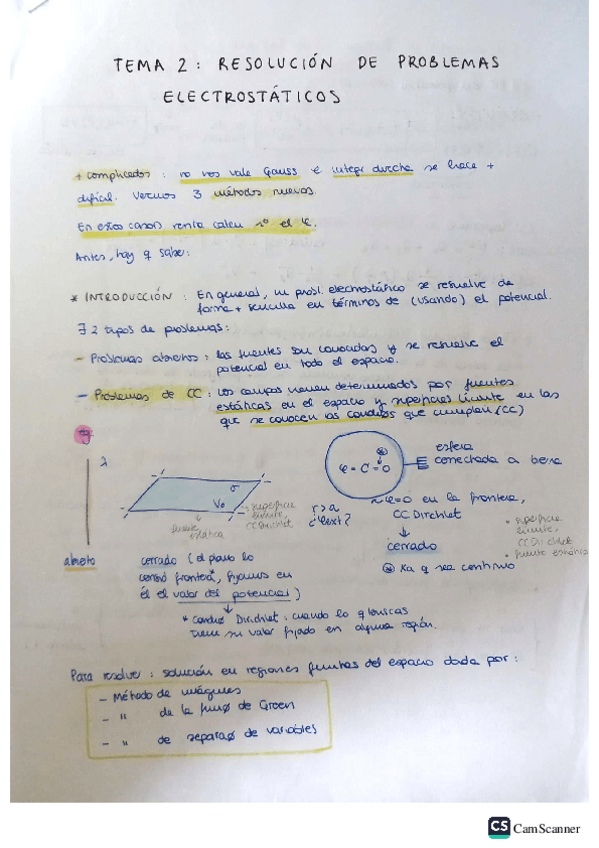 TEMA 2 : RESOLUCIÓN DE PROBLEMAS
ELECTROSTÁTICOS
+ complicados : no nos vale Gauss e integr directa se hace +
difícil. Vemos 3 métodos nuevos.
En estos casos renta calcu 1º el φ.
Antes, hay q saber:
* INTRODUCCIÓN : En general, un probl. electrostático se resuelve de
forma + sencilla en términos de (usando) el potencial.
∃ 2 tipos de problemas:
- Problemas abiertos : las fuentes son conocidas y se resuelve el
potencial en todo el espacio.
- Problemas de CC : los campos vienen determinados por fuentes
estáticas en el espacio y superficies límite en las
que se conocen las condics que cumplan (CC)
eg
λ
abierto
σ
V₀
superficie
límite,
CC Dirichlet
fuente
estática
cerrado (el plano lo
consid frontera*, fijamos en
él el valor del potencial)
* Condic Dirichlet : cuando lo q buscas
tiene su valor fijado en alguna región.
φ = C = 0
r>a
φ ext?
esfera
conectada a tierra
φ=0 en la frontera,
CC Dirichlet
cerrado
Xa q sea continuo
* superficie
límite,
CC Dirichlet
* fuente estática
Para resolver : solución en regiones finitas del espacio dada por :
- Método de imágenes
- " de la funφ de Green
- " de separaφ de variables
CS CamScanner